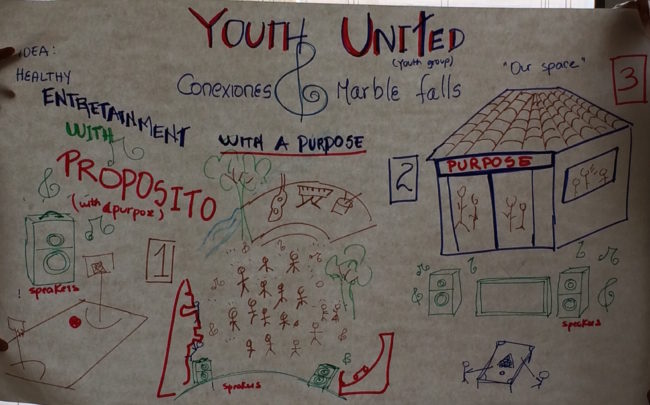 YOUTH UNITED
(Youth group)
Conexiones Marble falls
IDEA:
HEALTHY
ENTRETAINMENT
WITH
PROPOSITO
(with a purpoz)
WITH A PURPOSE
"Our space"
3
2
PURPOSE
1
speakers
speakers
speakers